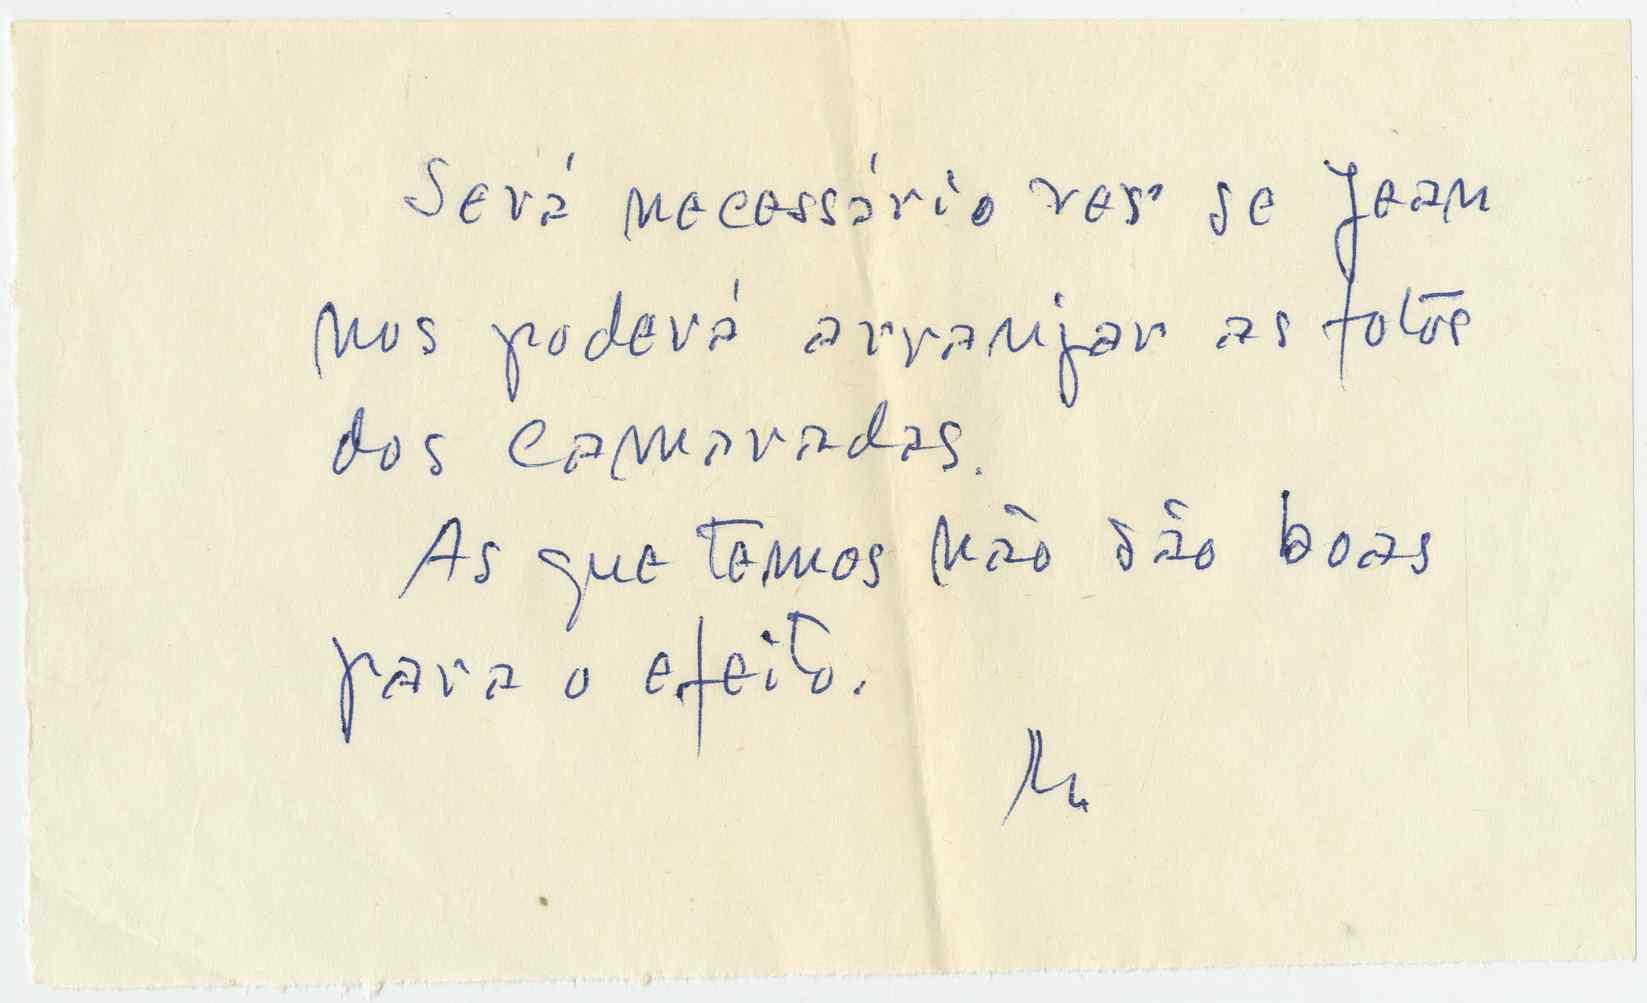 Será necessário ver se Jean
nos poderá arranjar as fotos
dos camaradas.
As que temos não são boas
para o efeito.
M.